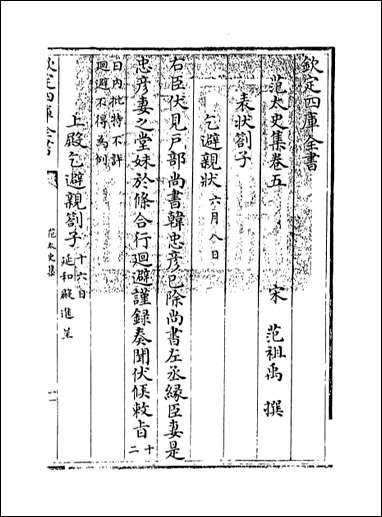 欽定四庫全書
范太史集卷五
宋 范祖禹 撰
表狀劄子
乞避親狀 六月八日
右臣伏見戶部尚書韓忠彦已除尚書左丞緣臣妻是
忠彦妻之堂妹於條合行迴避謹録奏聞伏候敕旨 十二
日內批特不許迴避不得為例
上殿乞避親劄子 十六日延和殿進呈
欽定四庫全書
范太史集
一